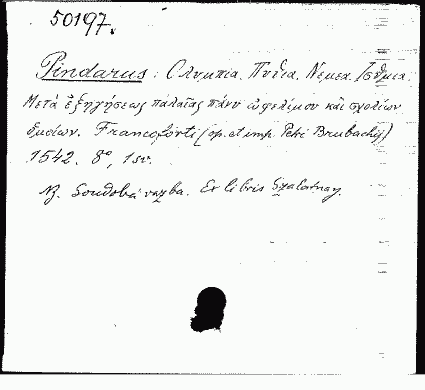 50197.
Pindarus: Ολυμπια. Πυθια. Νεμεα. Ισθμια.
Μετὰ ἐξηγήσεως παλαιᾶς πάνυ ὠφελίμου καὶ σχολίων
ὁμοίων. Francoforti (op. et imp. Petri Brubachij)
1542. 8°, 1 sv.
Soudobá vazba. Ex libris Szalatnay.